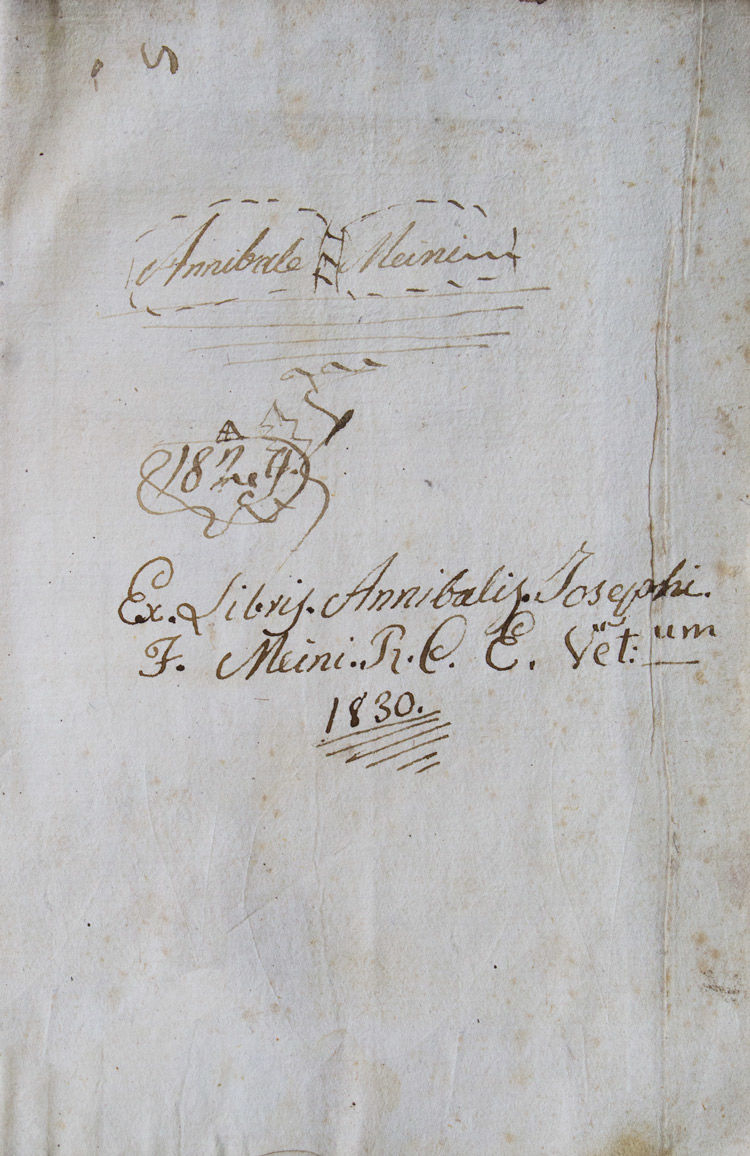 Annibale Meini
1829.
Ex. Libris. Annibalis. Josephi.
F. Meini. R. C. E. Vet: um
1830.